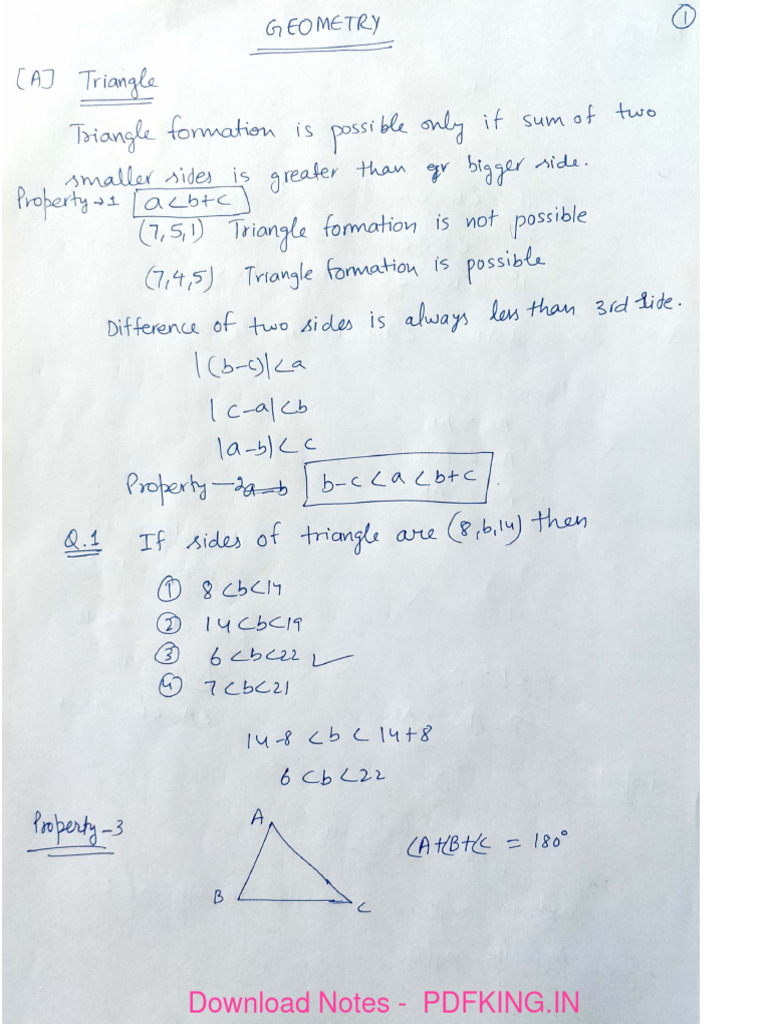 GEOMETRY
1
[A] Triangle
Triangle formation is possible only if sum of two
smaller sides is greater than bigger side.
Property→1 a<b+c
(7,5,1) Triangle formation is not possible
(7,4,5) Triangle formation is possible
Difference of two sides is always less than 3rd side.
|(b-c)|<a
|c-a|<b
|a-b|<c
Property-2 a-b b-c<a<b+c.
Q.1 If sides of triangle are (8,b,14) then
① 8<b<14
② 14<b<19
③ 6<b<22 ✓
④ 7<b<21
14-8<b<14+8
6<b<22
Property-3
A
∠A+∠B+∠C = 180°
B
C
Download Notes - PDFKING.IN